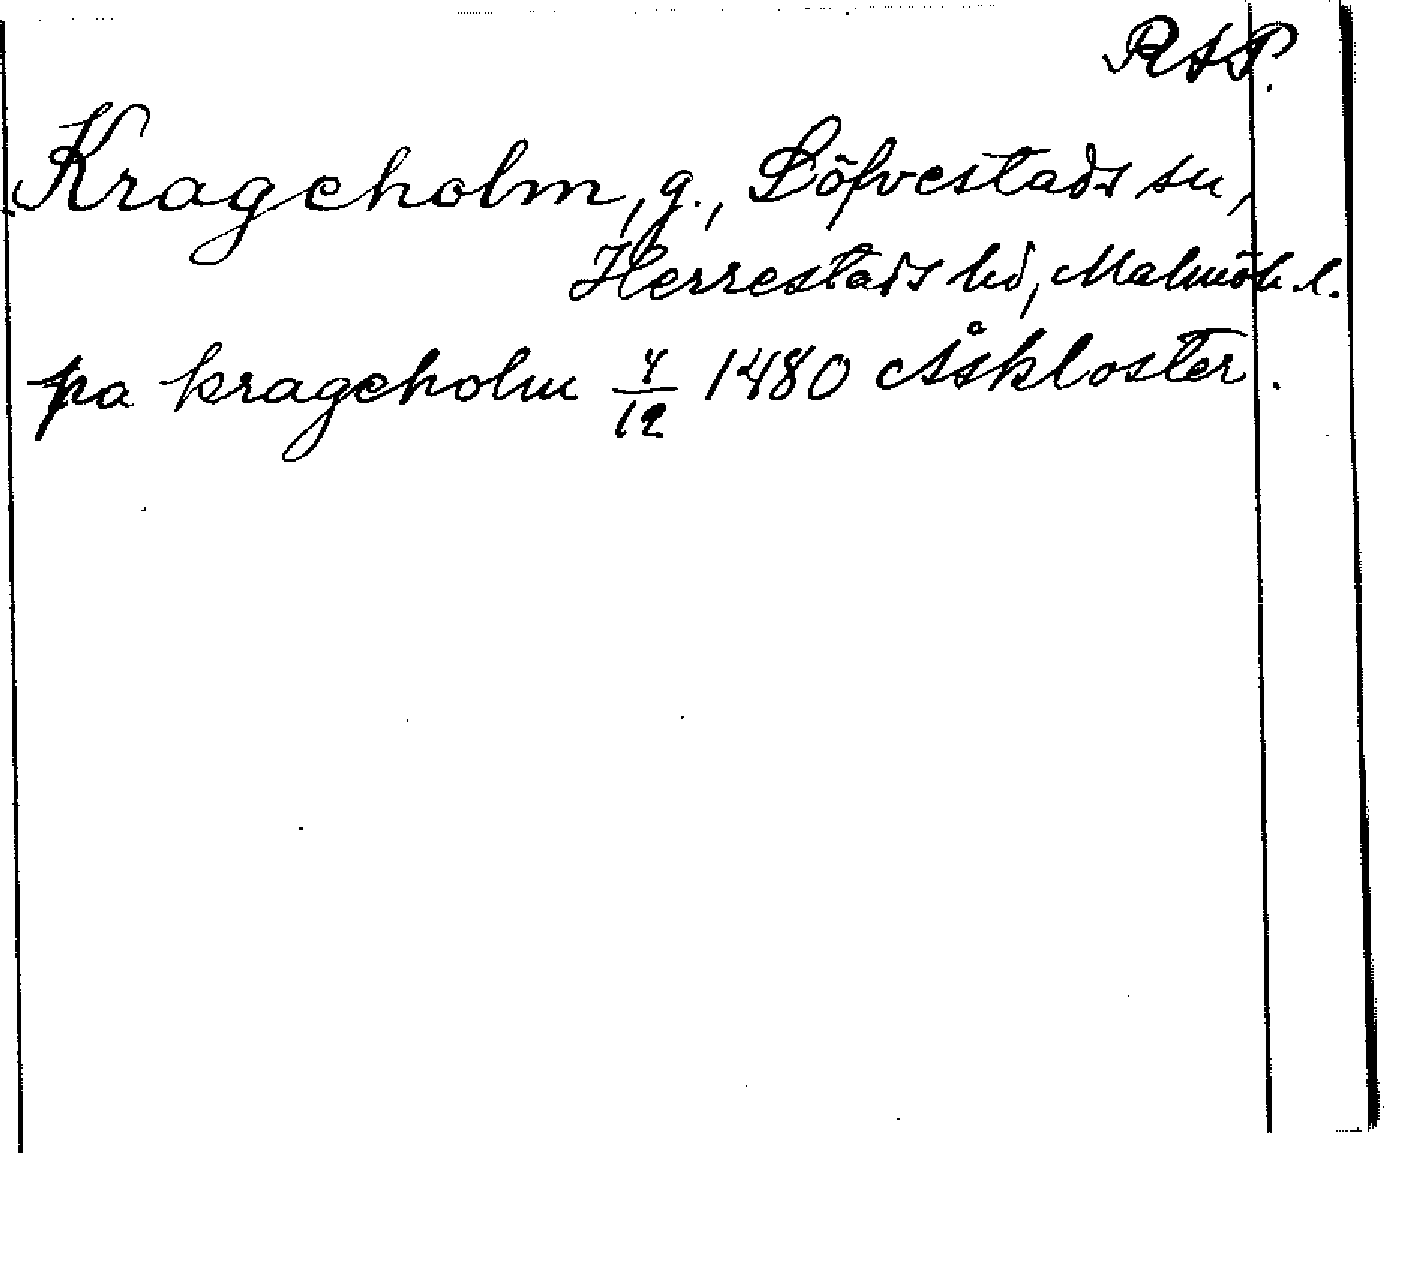 RAP.
Krageholm, g., Löfvestads sn,
Herrestads hd, Malmöh. l.
pa krageholm 4/12 1480 Åskloster.